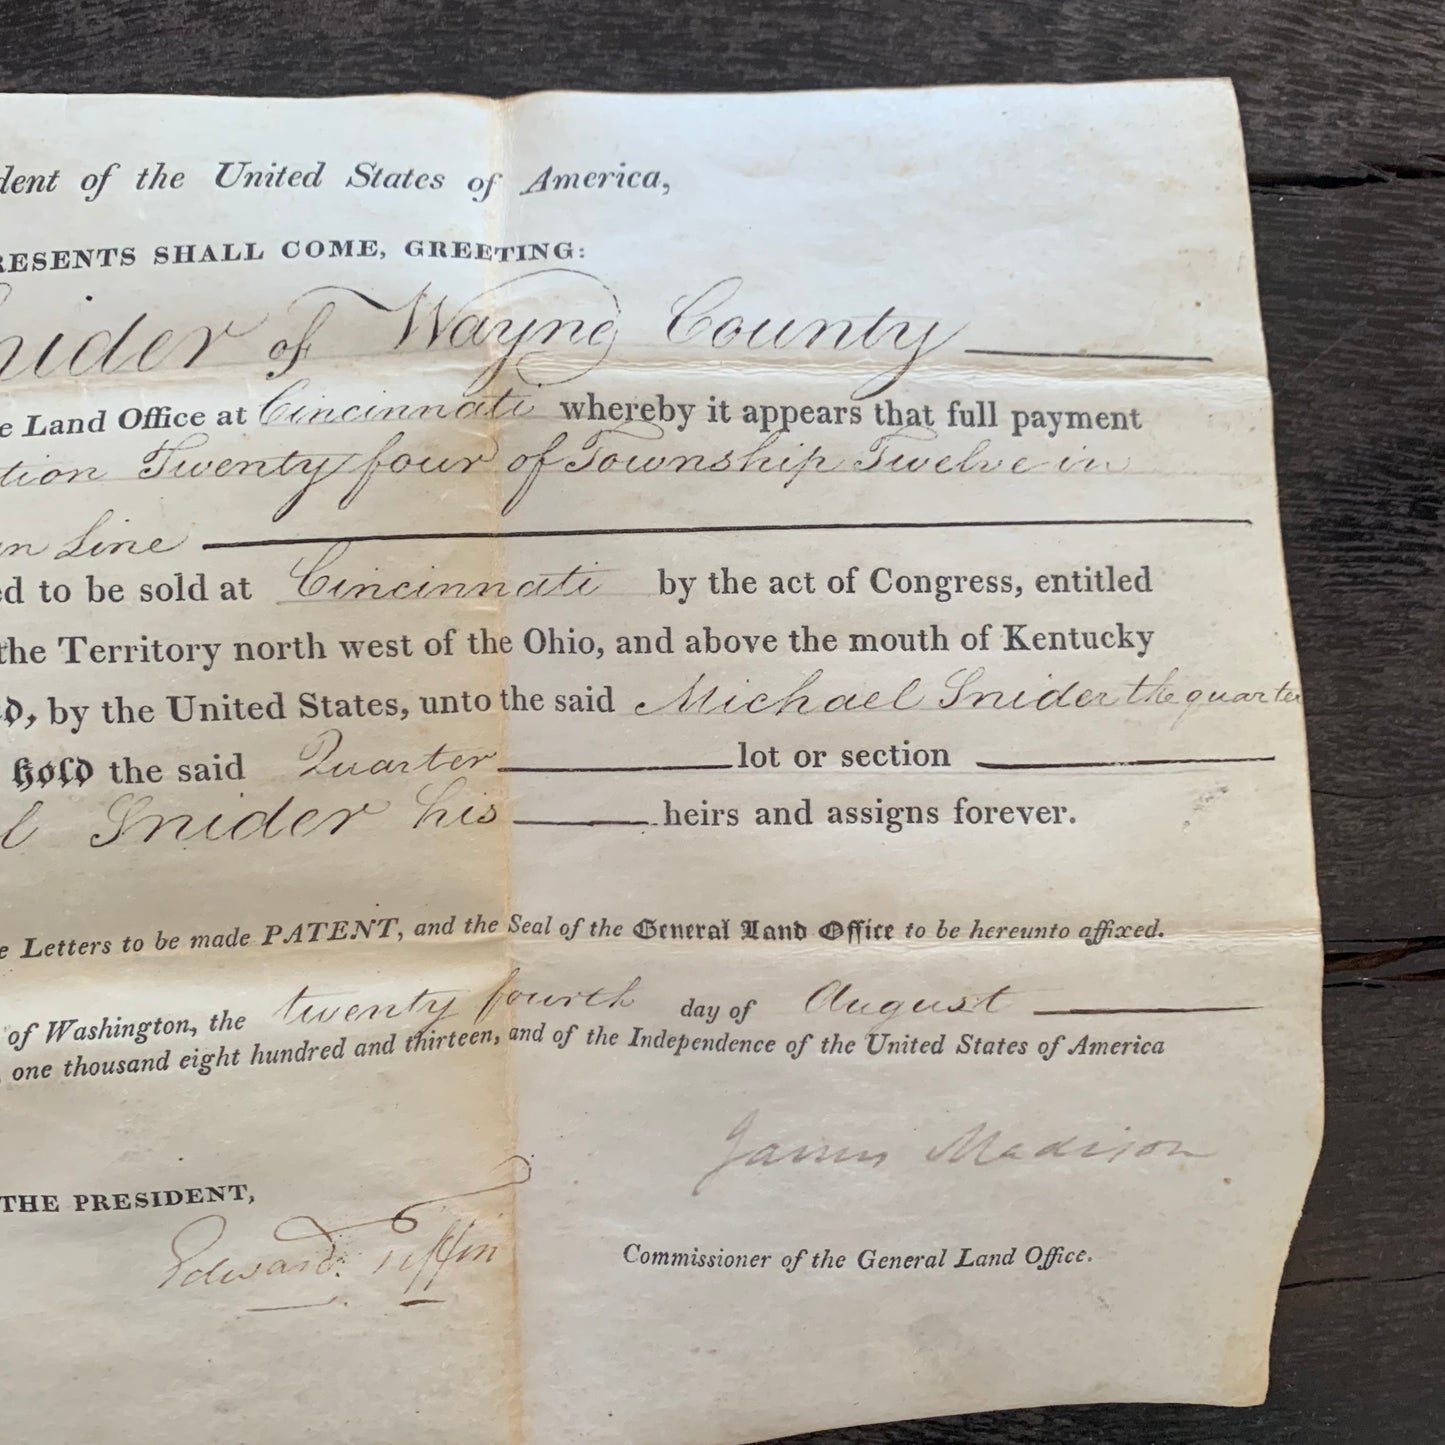 dent of the United States of America,
RESENTS SHALL COME, GREETING:
nider of Wayne County
e Land Office at Cincinnati whereby it appears that full payment
tion Twenty four of Township Twelve in
an Line
ed to be sold at Cincinnati by the act of Congress, entitled
the Territory north west of the Ohio, and above the mouth of Kentucky
D, by the United States, unto the said Michael Snider the quarter
Hold the said Quarter lot or section
l Snider his heirs and assigns forever.
e Letters to be made PATENT, and the Seal of the General Land Office to be hereunto affixed.
of Washington, the twenty fourth day of August
, one thousand eight hundred and thirteen, and of the Independence of the United States of America
James Madison
THE PRESIDENT,
Edward Tiffin
Commissioner of the General Land Office.